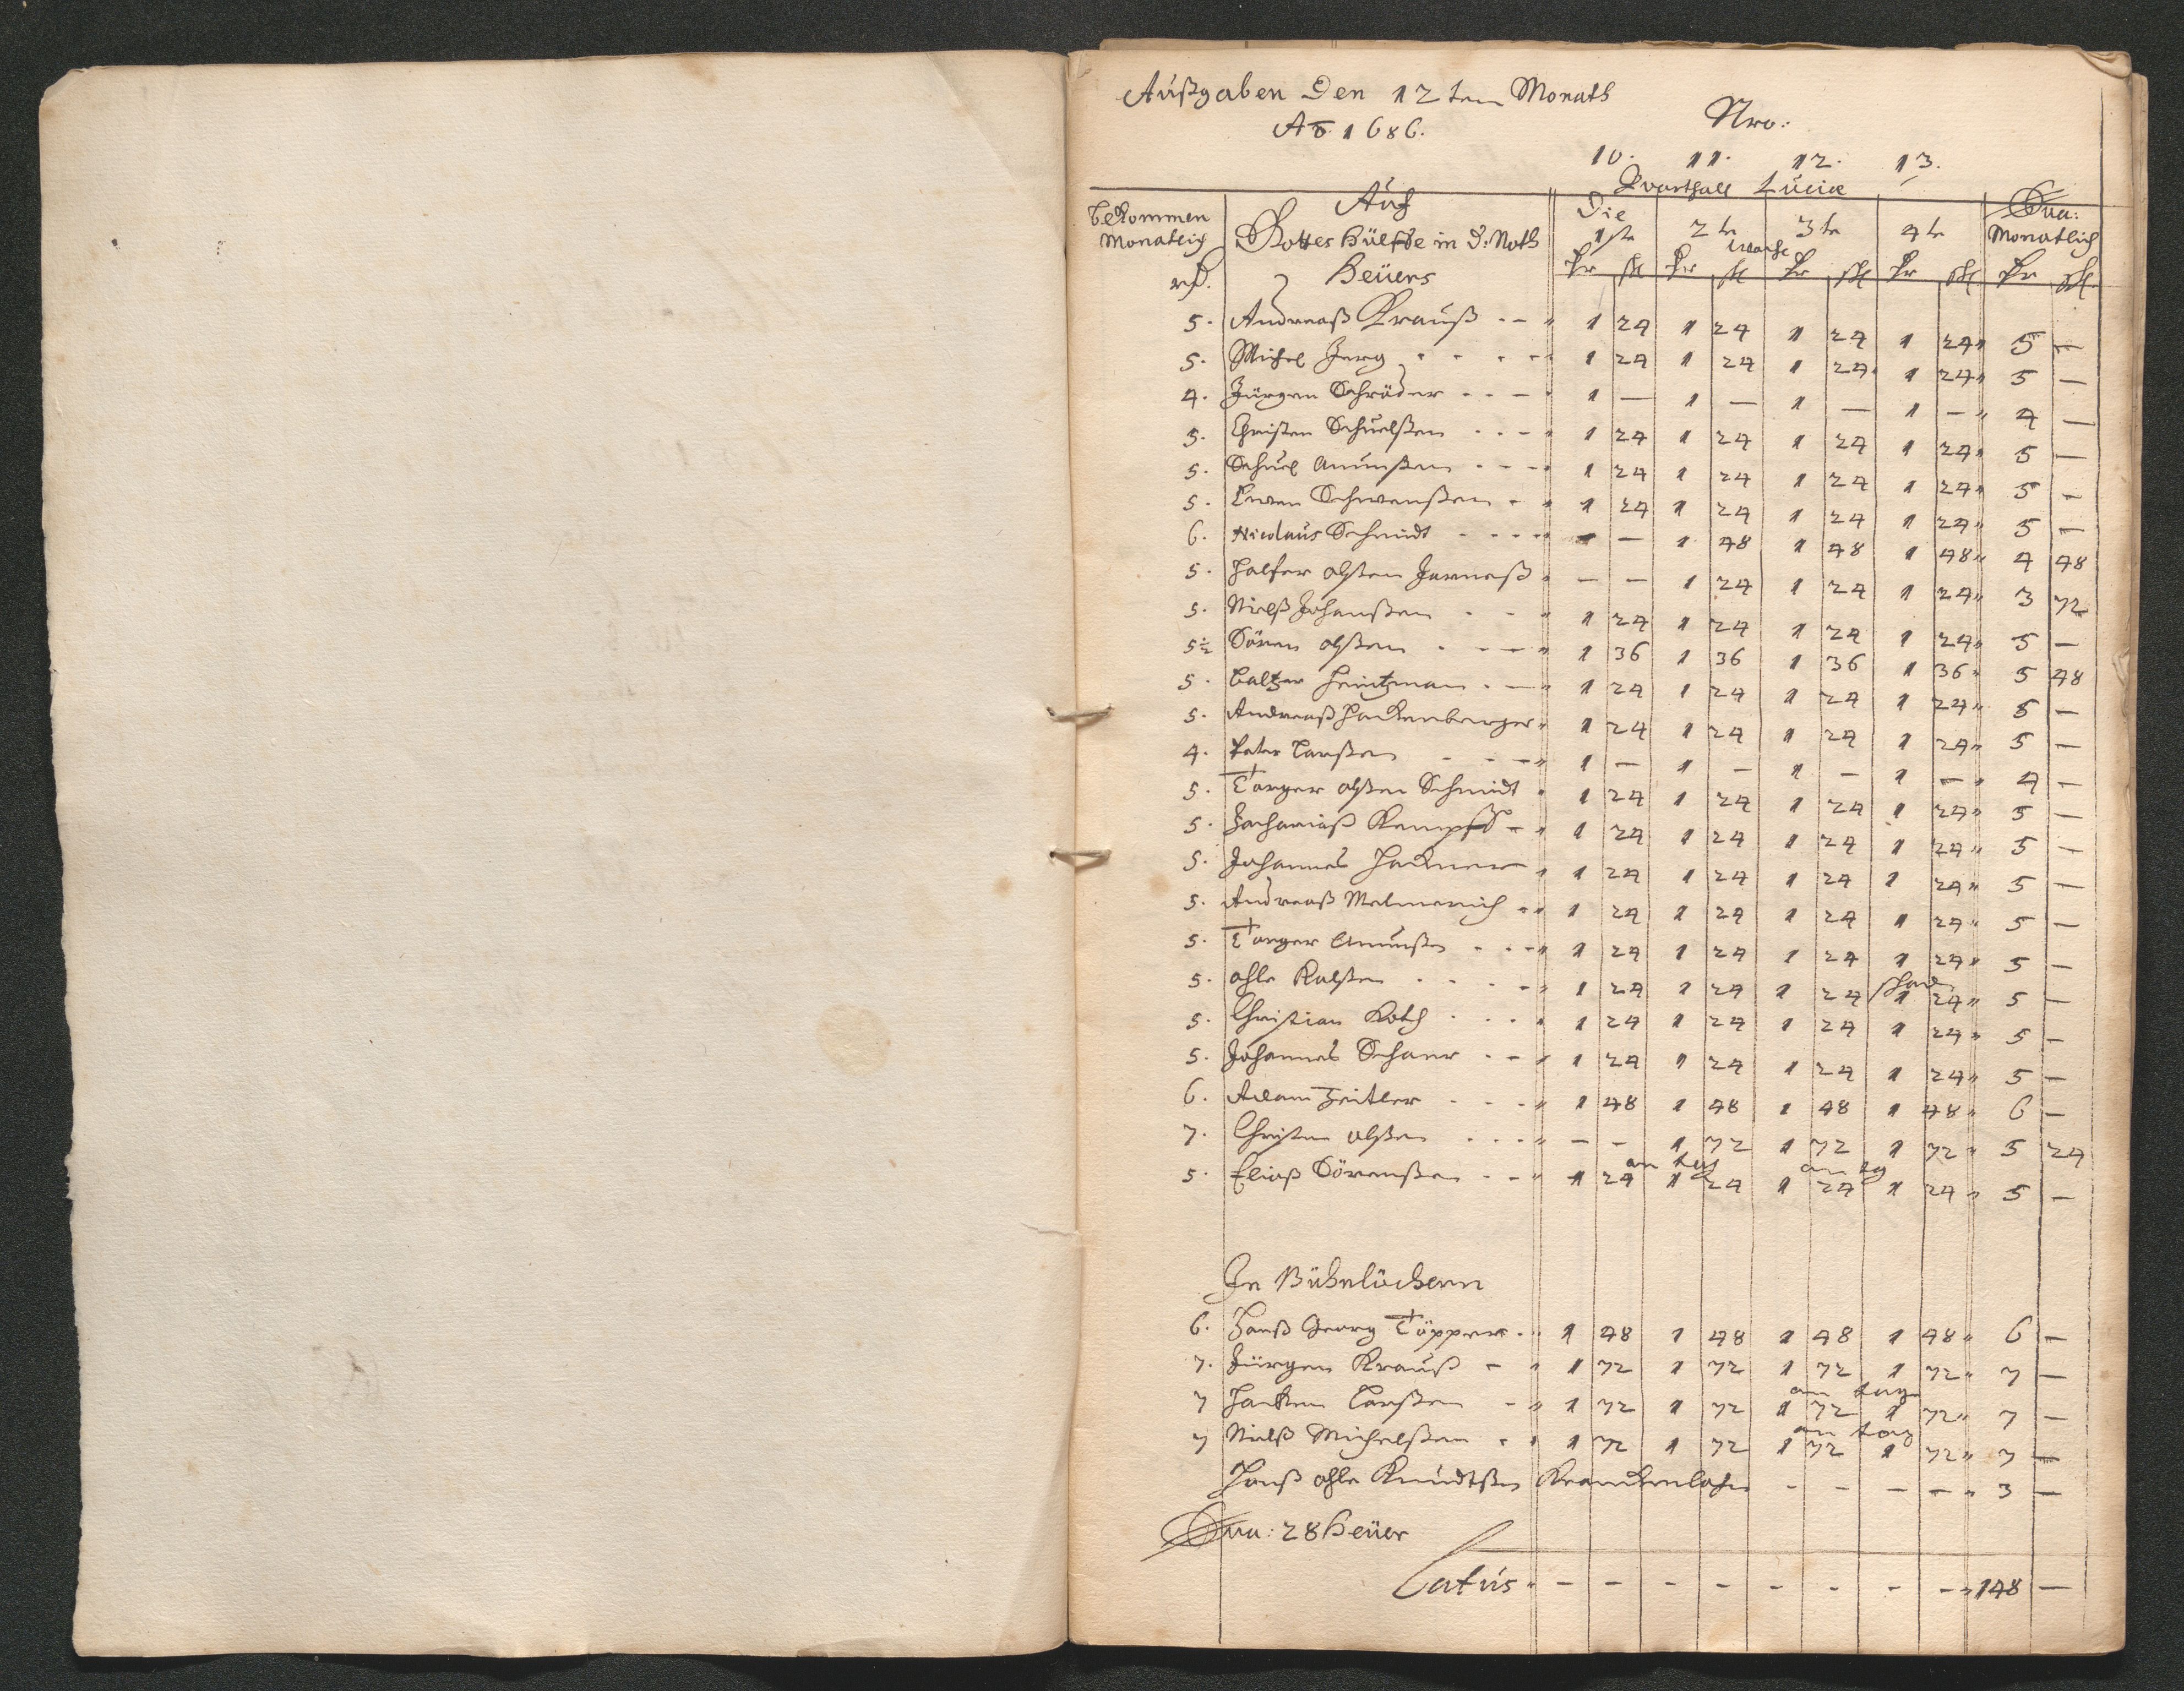 Außgaben Den 12ten Monath
Ao 1686.
Nro:
10. 11. 12. 13.
Qvarthall Luciæ
bekommen Monatlich
Auf Gottes Hülffe in d: Noth
Heüers
Die 1ste 2te 3te 4te
woche
Sua: Monatlich
rd.
5. Andreaß Krauß 1 24 1 24 1 24 1 24 5 —
5. Michel Jerg 1 24 1 24 1 24 1 24 5 —
4. Jürgen Schröder 1 — 1 — 1 — 1 — 4 —
5. Christen 1 24 1 24 1 24 1 24 5 —
5. 1 24 1 24 1 24 1 24 5 —
5. 1 24 1 24 1 24 1 24 5 —
6. Nicolaus Schmidt — — 1 48 1 48 1 48 4 48
5. Halfer olßen — — 1 24 1 24 1 24 3 72
5. Nielß Johanßen 1 24 1 24 1 24 1 24 5 —
5½ Sören olßen 1 36 1 36 1 36 1 36 5 48
5. Baltzer Heintzman 1 24 1 24 1 24 1 24 5 —
5. Andreaß Hackenberger 1 24 1 24 1 24 1 24 5 —
4. Peter Larßen 1 — 1 — 1 — 1 — 4 —
5. Torger olßen Schmidt 1 24 1 24 1 24 1 24 5 —
5. Zachariaß Kempff 1 24 1 24 1 24 1 24 5 —
5. Johannes Hackner 1 24 1 24 1 24 1 24 5 —
5. Andreaß Melmerich 1 24 1 24 1 24 1 24 5 —
5. Torger Amunßen 1 24 1 24 1 24 1 24 5 —
5. ohle 1 24 1 24 1 24 1 24 5 —
5. Christian Koch 1 24 1 24 1 24 1 24 5 —
5. Johannes 1 24 1 24 1 24 1 24 5 —
6. Adam Zeitler 1 48 1 48 1 48 1 48 6 —
7. Christen olßen — — 1 72 1 72 1 72 5 24
an tag an tg
5. Eliaß Sörenßen 1 24 1 24 1 24 1 24 5 —
In Bühnlöchern
6. Hanß Georg Töpper 1 48 1 48 1 48 1 48 6 —
7. Jürgen Krauß 1 72 1 72 1 72 1 72 7 —
an tage
7 Larßen 1 72 1 72 1 72 1 72 7 —
an tag
7 Nielß Michelßen 1 72 1 72 1 72 1 72 7 —
Hanß ohle Knudtßen Kranckenlohn — — — — 3 —
Sua: 28 Heüer
Latus — — — — — — — — 148 —